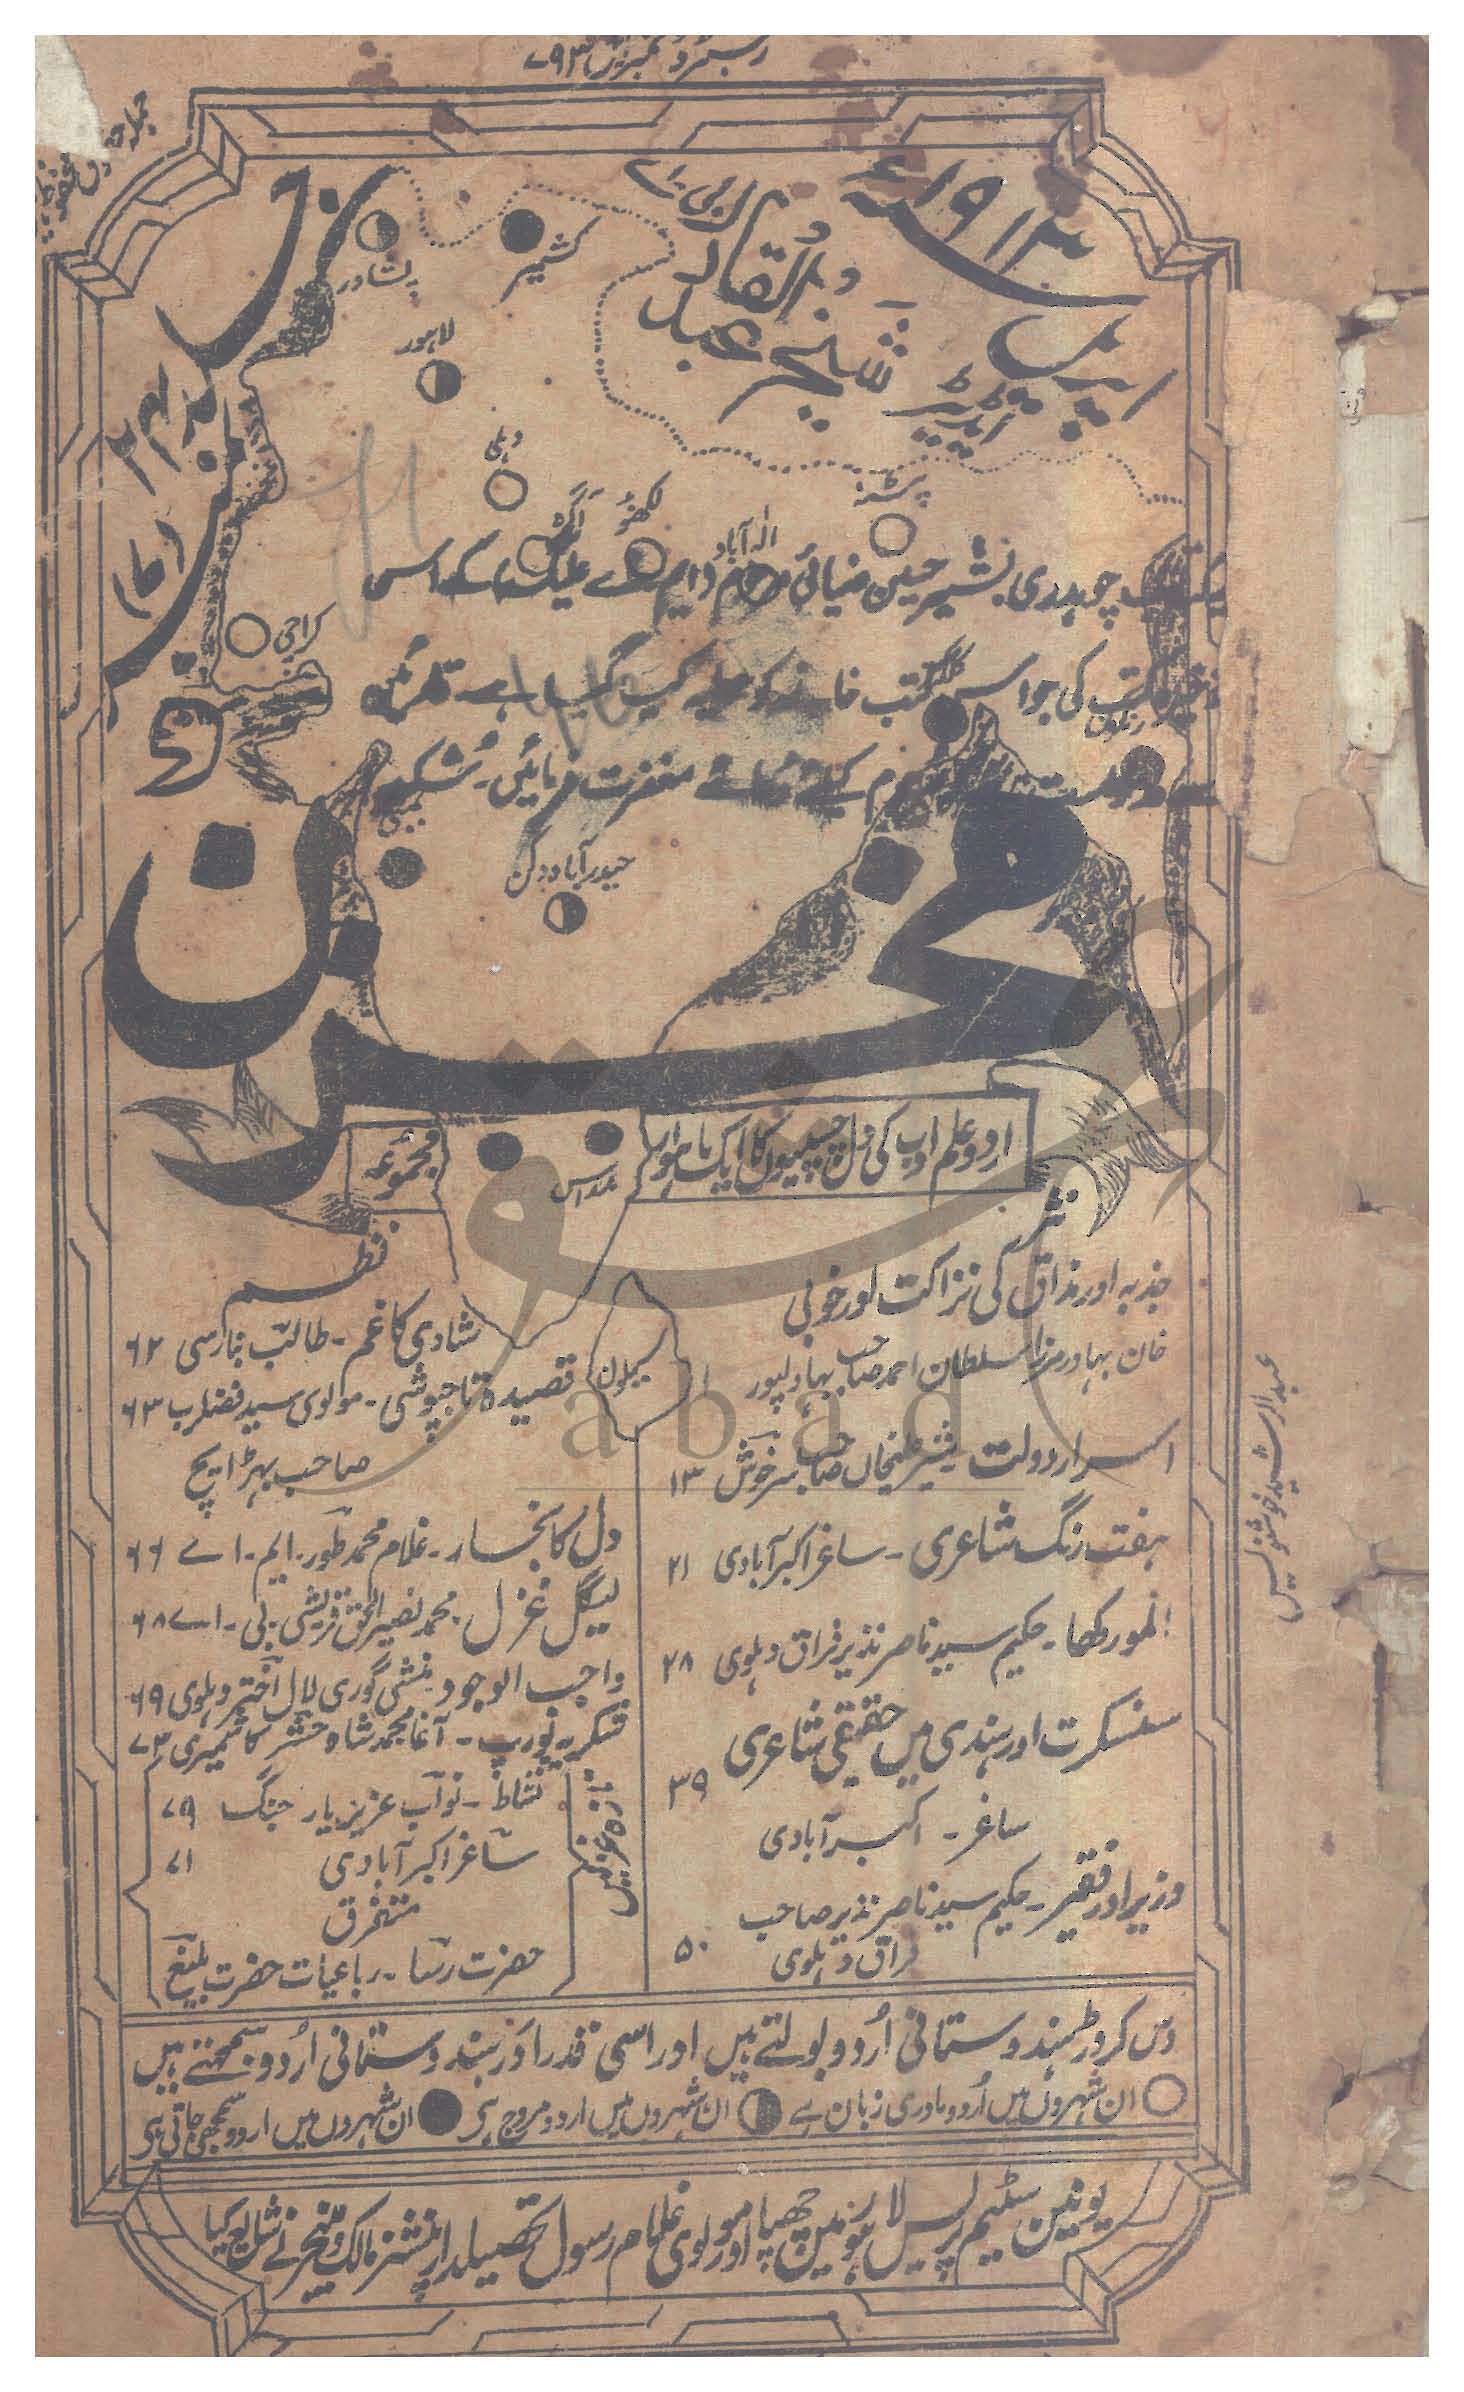 رجسٹرڈ نمبر ۷۹۳
اپریل ۱۹۱۲ء
ایڈیٹر
شیخ عبدالقادر بی اے
جلد ۲۳
نمبر ۱
کشمیر
پشاور
لاہور
دہلی
آگرہ
لکھنؤ
الہ آباد
پٹنہ
کراچی
کلکتہ
رنگون
بمبئی
حیدرآباد دکن
مدراس
سیلون
چوہدری بشیر حسین ضیائی مرحوم
کتب کی جو اس کتب خانہ کو کیا گیا ہے
مرحوم کیلئے دعائے مغفرت فرمائیں
مخزن
اردو علم ادب کی دلچسپیوں کا ایک ماہوار
مجموعہ
نثر
جذبہ اور مذاق کی نزاکت اور خوبی
خان بہادر مرزا سلطان احمد صاحب بہاولپور ۱
اسرار دولت بشیر علیخاں صاحب سرخوش ۱۳
ہفت رنگ شاعری - ساغر اکبرآبادی ۲۱
انمور کھا - حکیم سید ناصر نذیر فراق دہلوی ۲۸
سنسکرت اور ہندی میں حقیقی شاعری ۳۹
ساغر - اکبرآبادی
وزیر اور فقیر - حکیم سید ناصر نذیر صاحب
فراق دہلوی ۵۰
نظم
شادی کا غم - طالب بنارسی ۶۲
قصیدہ تاجپوشی - مولوی سید فضل رب ۶۳
صاحب بہڑایچ
دل کا بخار - غلام محمد طور - ایم - اے ۶۶
لیگل غزل - محمد نصیر الحق قریشی - بی - اے ۶۸
واجب الوجود منشی گوری لال اختر دہلوی ۶۹
شکریہ یورپ - آغا محمد شاہ حشر کاشمیری ۷۳
تازہ غزلیں
نشاط - نواب عزیز یار جنگ ۷۹
ساغر اکبرآبادی ۷۱
متفرق
حضرت رسا - رباعیات حضرت بلیغ
دس کروڑ ہندوستانی اُردو بولتے ہیں اور اسی قدر اَور ہندوستانی اُردو سمجھتے ہیں
ان شہروں میں اُردو مادری زبان ہے ان شہروں میں اردو مروج ہی ان شہروں میں اردو سمجھی جاتی ہی
یونین سٹیم پریس لاہور میں چھپا اور مولوی غلام رسول تحصیلدار پنشنر مالک و منیجر نے شایع کیا
عبدالرشید خوشنویس
abad